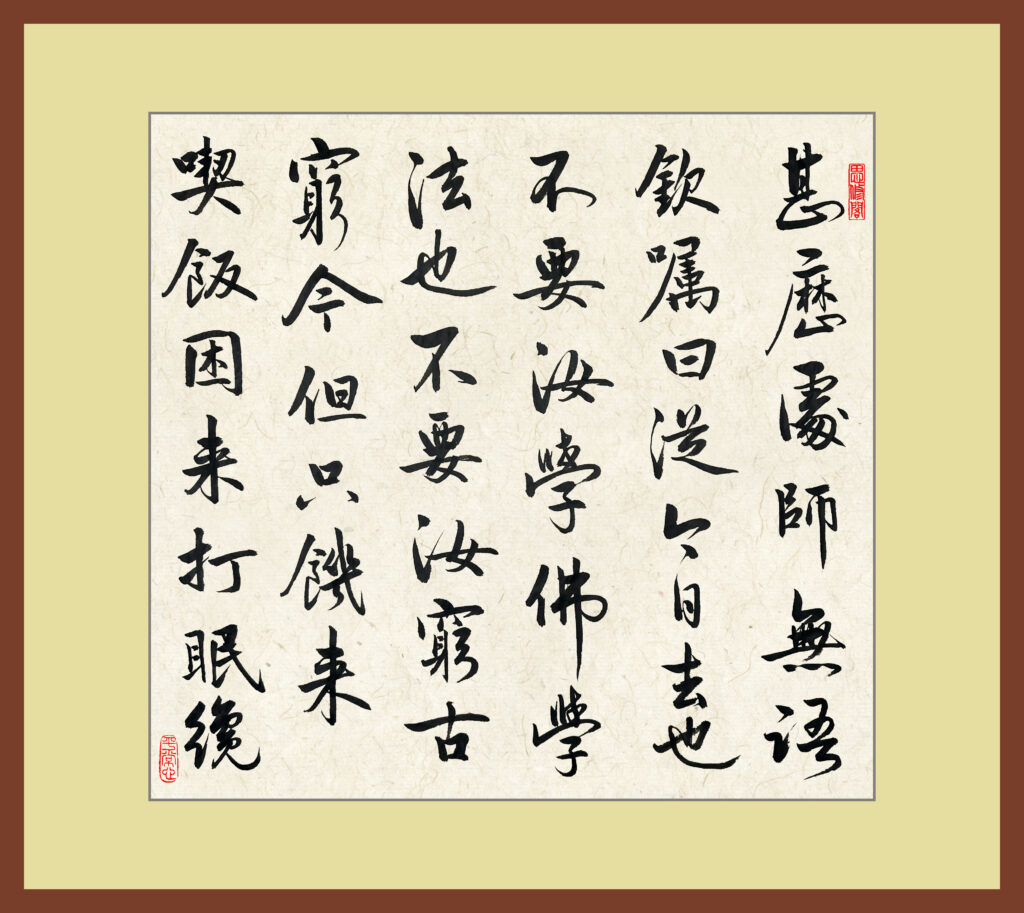 思修閣
甚麼處師無語
欽嘱曰從今日去也
不要汝學佛學
法也不要汝窮古
窮今但只饑来
喫飯困来打眠纔
平常心